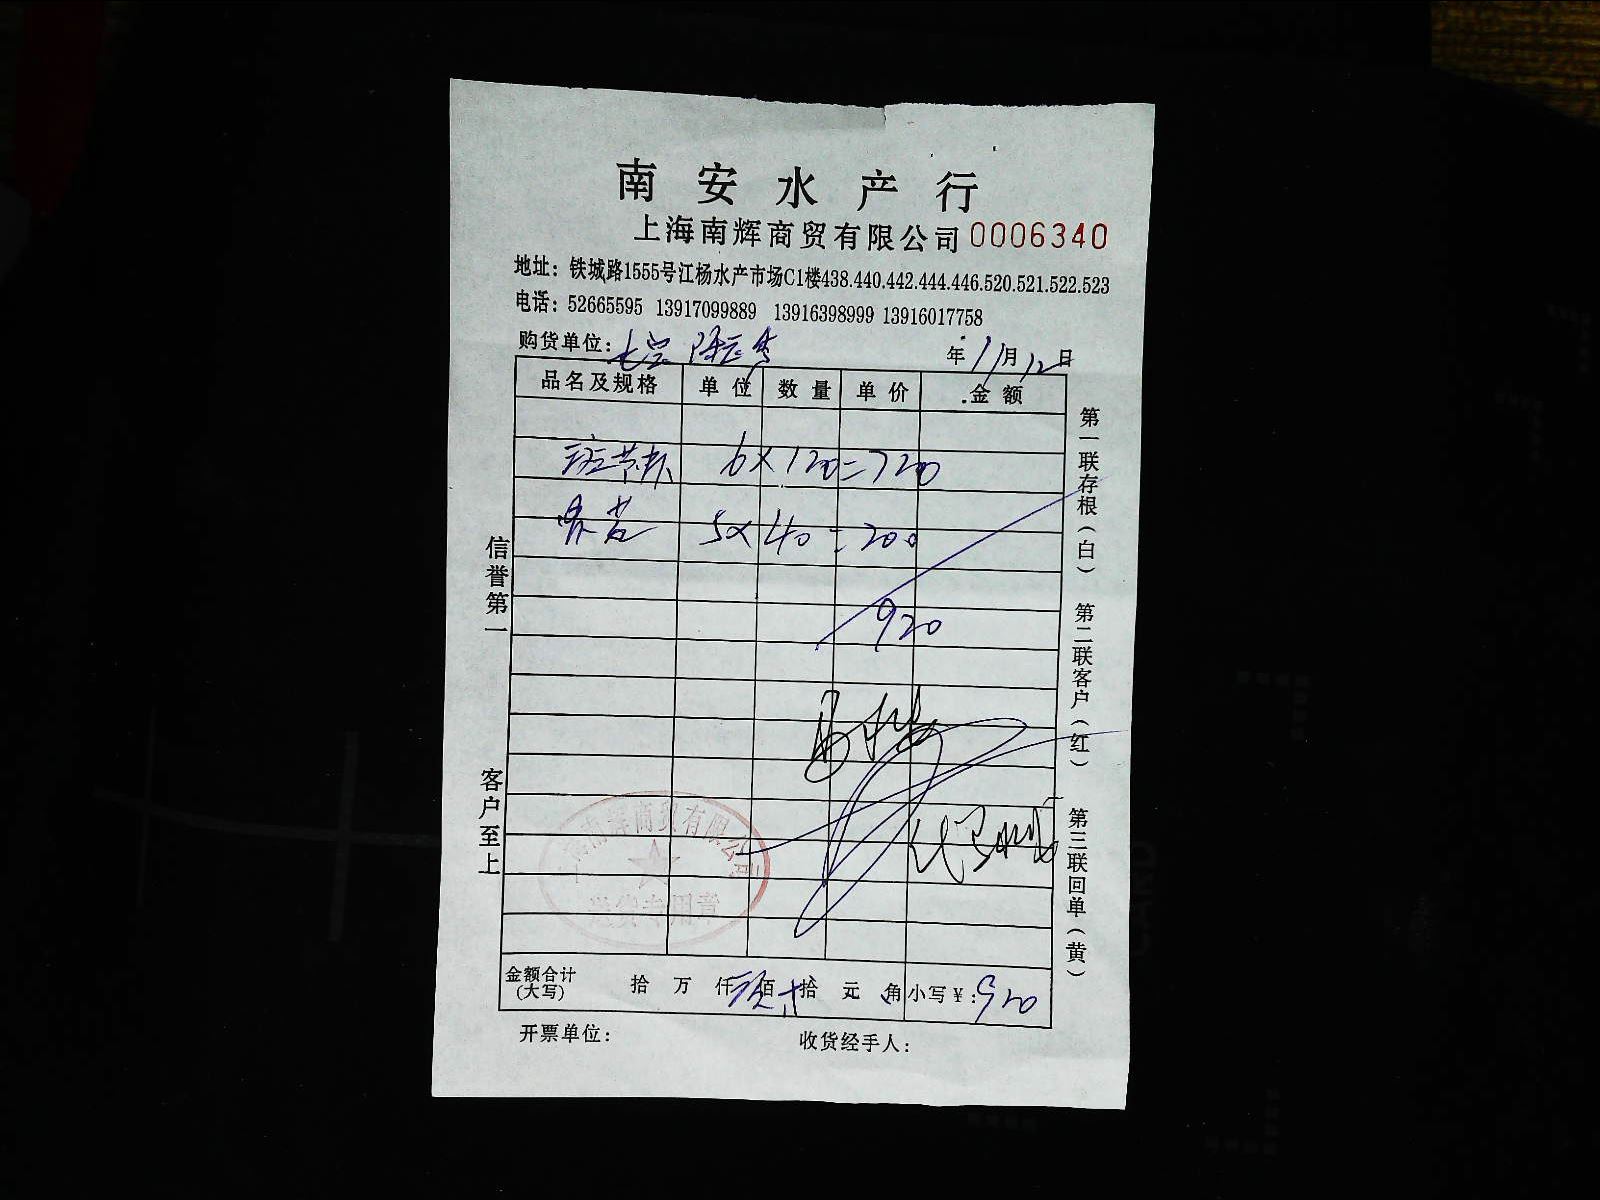 南安水产行
上海南辉商贸有限公司 0006340
地址：铁城路1555号江杨水产市场C1楼438.440.442.444.446.520.521.522.523
电话：52665595 13917099889 13916398999 13916017758
购货单位：
年 11月12日
品名及规格 单位 数量 单价 金额
班节 6×120=720
5×40=200
920
信誉第一
客户至上
第一联存根（白） 第二联客户（红） 第三联回单（黄）
南辉商贸有限公司
专用章
金额合计（大写） 拾 万 仟 佰 拾 元 角 小写￥：920
开票单位： 收货经手人：